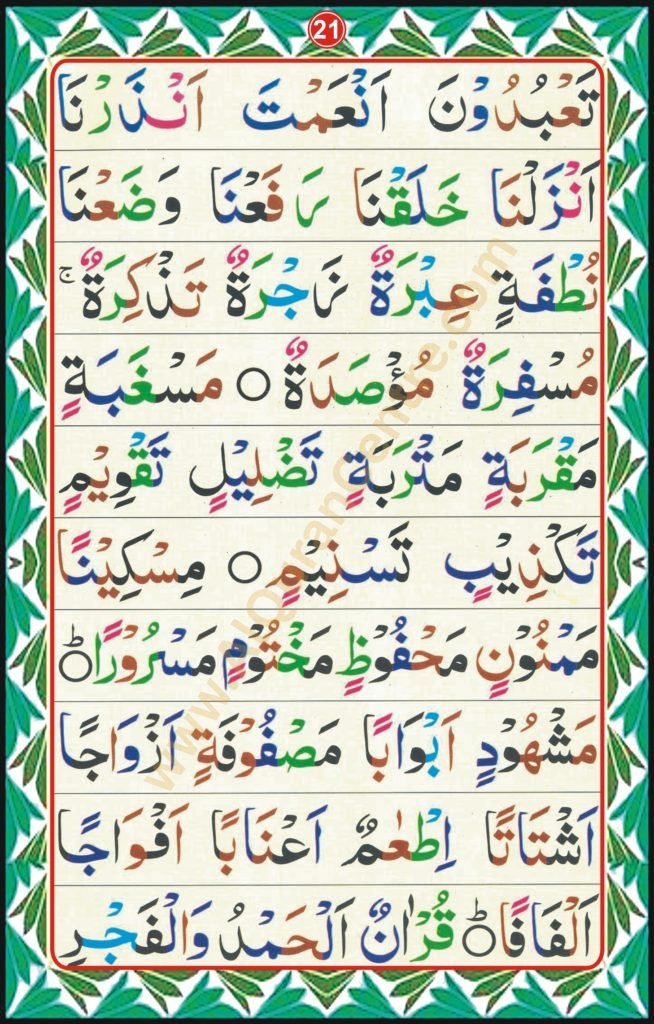 21
تَعْبُدُوْنَ اَنْعَمْتَ اَنْذَرْنَا
اَنْزَلْنَا خَلَقْنَا رَفَعْنَا وَضَعْنَا
نُطْفَةٍ عِبْرَةٌ نَجْرَةٌ تَذْكِرَةٌ ۚ
مُسْفِرَةٌ مُؤْصَدَةٌ ○ مَسْغَبَةٍ
مَقْرَبَةٍ مَتْرَبَةٍ تَضْلِيْلٍ تَقْوِيْمٍ
تَكْذِيْبٍ تَسْنِيْمٍ ○ مِسْكِيْنًا
مَمْنُوْنٍ مَحْفُوْظٍ مَخْتُوْمٍ مَسْرُوْرًا ؕ○
مَشْهُوْدٍ اَبْوَابًا مَصْفُوْفَةٍ اَزْوَاجًا
اَشْتَاتًا اِطْعٰمٌ اَعْنَابًا اَفْوَاجًا
اَلْفَافًا ؕ○ قُرْاٰنٌ اَلْحَمْدُ وَالْفَجْرِ